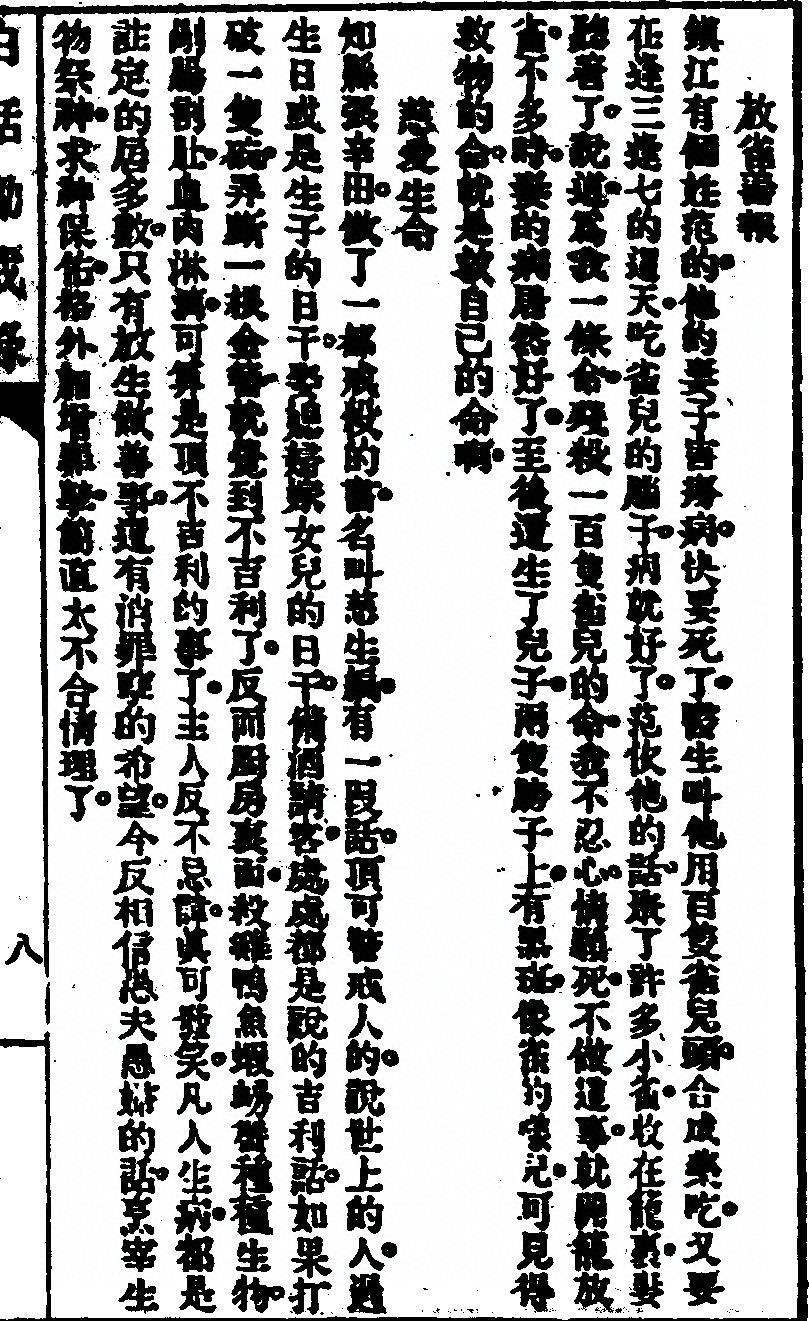 放雀善報
鎮江有個姓范的他的妻子害癆病快要死了醫生叫他用百隻雀兒頭合成藥吃又要
在逢三逢七的這天吃雀兒的腦子病就好了范依他的話聚了許多小雀收在籠裏妻
聽着了說道爲我一條命殘殺一百隻雀兒的命我不忍心情願死不做這事就開籠放
雀不多時妻的病居然好了至後還生了兒子兩隻膀子上有黑斑像雀的樣兒可見得
救物的命就是救自己的命啊
慈愛生命
知縣張辛田做了一部戒殺的書名叫慈生編有一段話頂可警戒人的說世上的人過
生日或是生子的日干娶媳婦嫁女兒的日干備酒請客處處都是說的吉利話如果打
破一隻碗弄斷一根金簪就覺到不吉利了反而厨房裏面殺雞鴨魚蝦螃蟹種種生物
剮腸割肚血肉淋漓可算是頂不吉利的事了主人反不忌諱眞可發笑凡人生病都是
註定的居多數只有放生做善事還有消罪孽的希望今反相信愚夫愚婦的話烹宰生
物祭神求神保佑格外加增罪孽簡直太不合情理了
白話勸戒錄
八